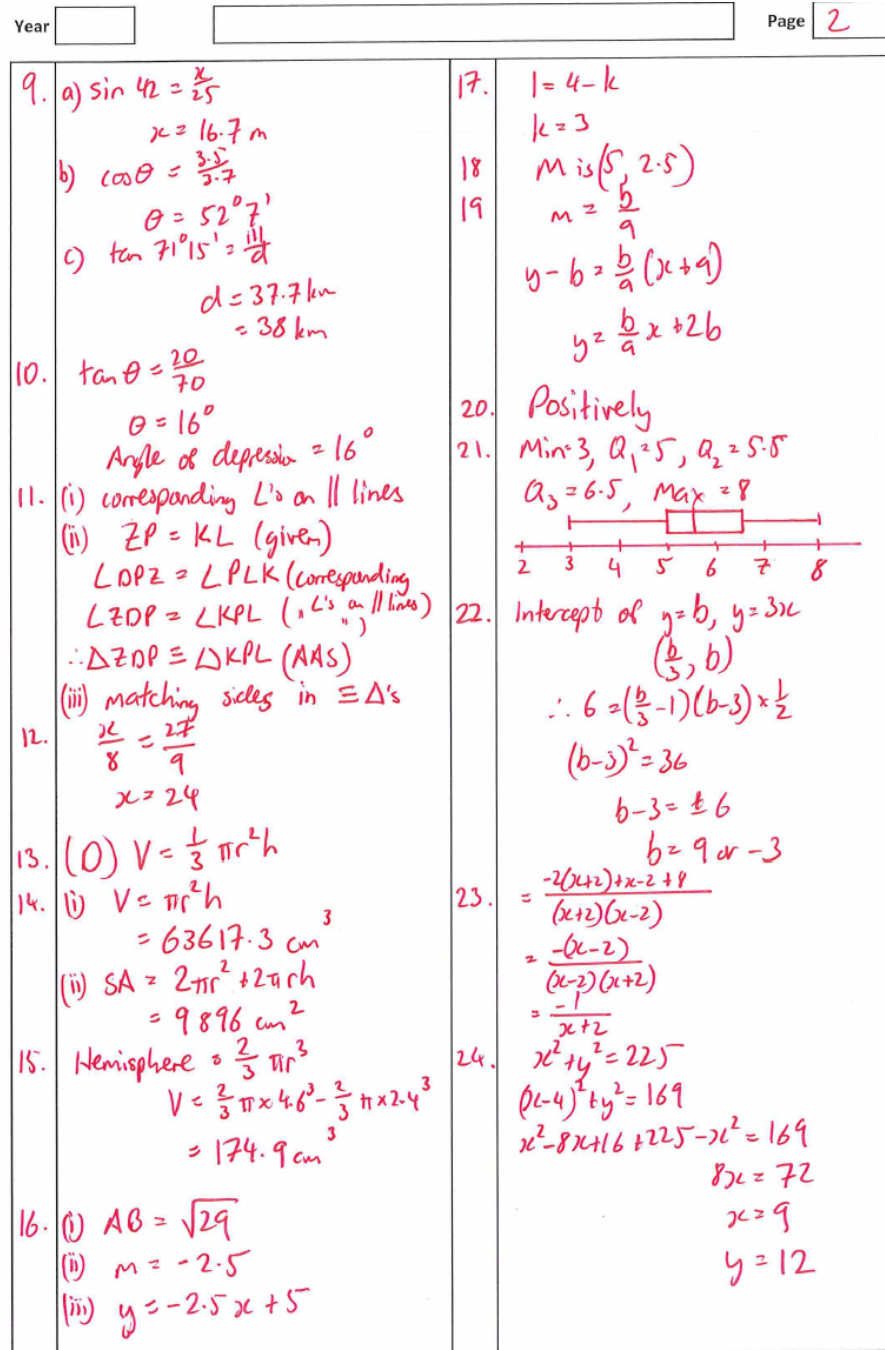 Year
Page 2
9. a) sin 42 = x/25
x = 16.7 m
b) cos θ = 3.5/3.7
θ = 52°7'
c) tan 71°15' = 111/d
d = 37.7 km
= 38 km
10. tan θ = 20/70
θ = 16°
Angle of depression = 16°
11. (i) corresponding L's on || lines
(ii) ZP = KL (given)
∠DPZ = ∠PLK (corresponding
∠ZDP = ∠KPL ( " L's on || lines)
")
∴ ΔZDP ≡ ΔKPL (AAS)
(iii) matching sides in ≡ Δ's
12. x/8 = 27/9
x = 24
13. (D) V = 1/3 πr²h
14. (i) V = πr²h
= 63617.3 cm³
(ii) SA = 2πr² + 2πrh
= 9896 cm²
15. Hemisphere = 2/3 πr³
V = 2/3 π × 4.6³ - 2/3 π × 2.4³
= 174.9 cm³
16. (i) AB = √29
(ii) m = -2.5
(iii) y = -2.5x + 5
17. 1 = 4 - k
k = 3
18 M is (5, 2.5)
19 m = b/a
y - b = b/a (x + a)
y = b/a x + 2b
20. Positively
21. Min = 3, Q₁ = 5, Q₂ = 5.5
Q₃ = 6.5, Max = 8
2 3 4 5 6 7 8
22. Intercept of y = b, y = 3x
(b/3, b)
∴ 6 = (b/3 - 1)(b - 3) × 1/2
(b - 3)² = 36
b - 3 = ± 6
b = 9 or -3
23. = -2(x+2)+x-2+8 / (x+2)(x-2)
= -(x-2) / (x-2)(x+2)
= -1 / x+2
24. x² + y² = 225
(x-4)² + y² = 169
x² - 8x + 16 + 225 - x² = 169
8x = 72
x = 9
y = 12